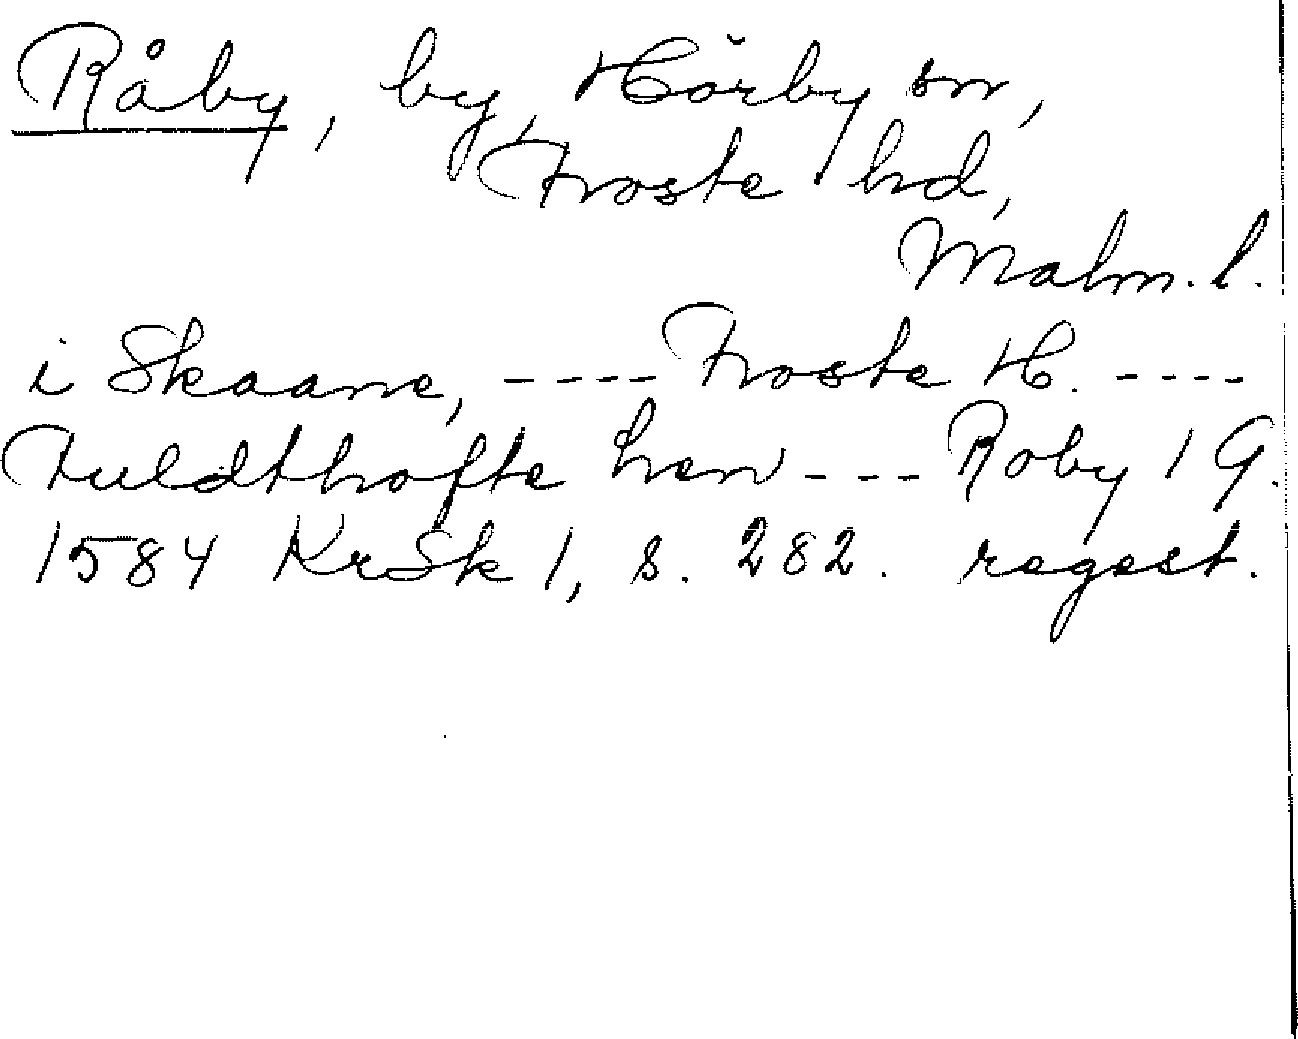 Råby, by, Hörby sn,
Froste hd,
Malm. l.
i Skaane, ---- Froste H. ----
Fuldthofte Len --- Roby 1 G.
1584 KrSk 1, s. 282. regest.